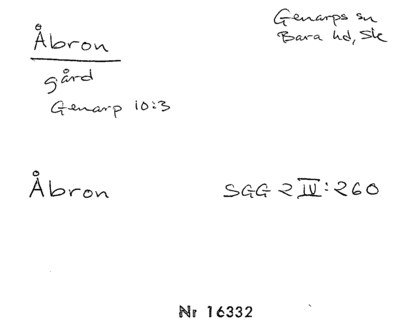 Åbron
gård
Genarp 10:3
Genarps sn
Bara hd, Sk
Åbron
SGG 2 IV: 260
Nr 16332